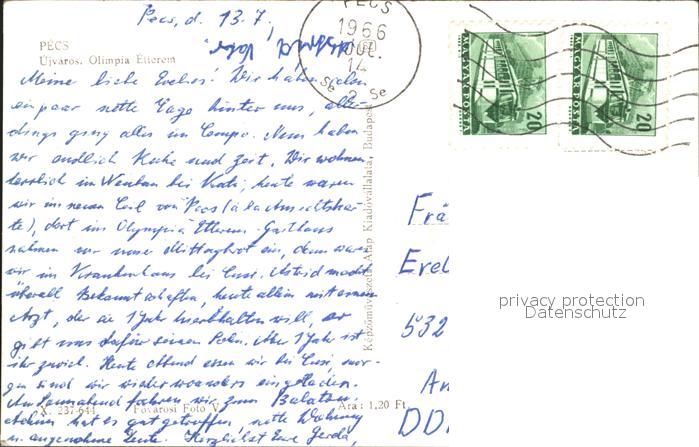 Pécs, d. 13.7.
PÉCS
Újváros. Olimpia Étterem
PÉCS
1966
JUL.
14
Se 2 Se
MAGYAR POSTA
20
MAGYAR POSTA
20
Meine liebe Evchen! Wir haben
ein paar nette Tage hinter uns, aller-
dings ging alles im Tempo. Nun haben
wir endlich Ruhe und Zeit. Wir wohnen
herrlich im Neubau bei Kati; heute waren
wir im neuen Teil von Pecs
dort im Olympia Etterem-Gasthaus
nahmen wir unser Mittagbrot ein, dann waren
wir im Krankenhaus bei Cusi. Astrid macht
überall Bekanntschaften, heute allein mit einem
Arzt, der sie 1 Jahr hierbehalten will, er
gibt uns dafür seinen Sohn. Aber 1 Jahr ist
ihr zuviel. Heute Abend essen wir bei Cusi, mor-
gen sind wir wieder woanders eingeladen.
Am Sonnabend fahren wir zum Balaton.
hat es gut getroffen, nette Wohnung
u. angenehme Leute. Herzlichst Eure Gerda,
X. 237-644
Fővárosi Fotó V.
Ára: 1,20 Ft.
Képzőművészeti Alap Kiadóvállalata, Budapest
Frä
Evel
532
An
DD
privacy protection
Datenschutz